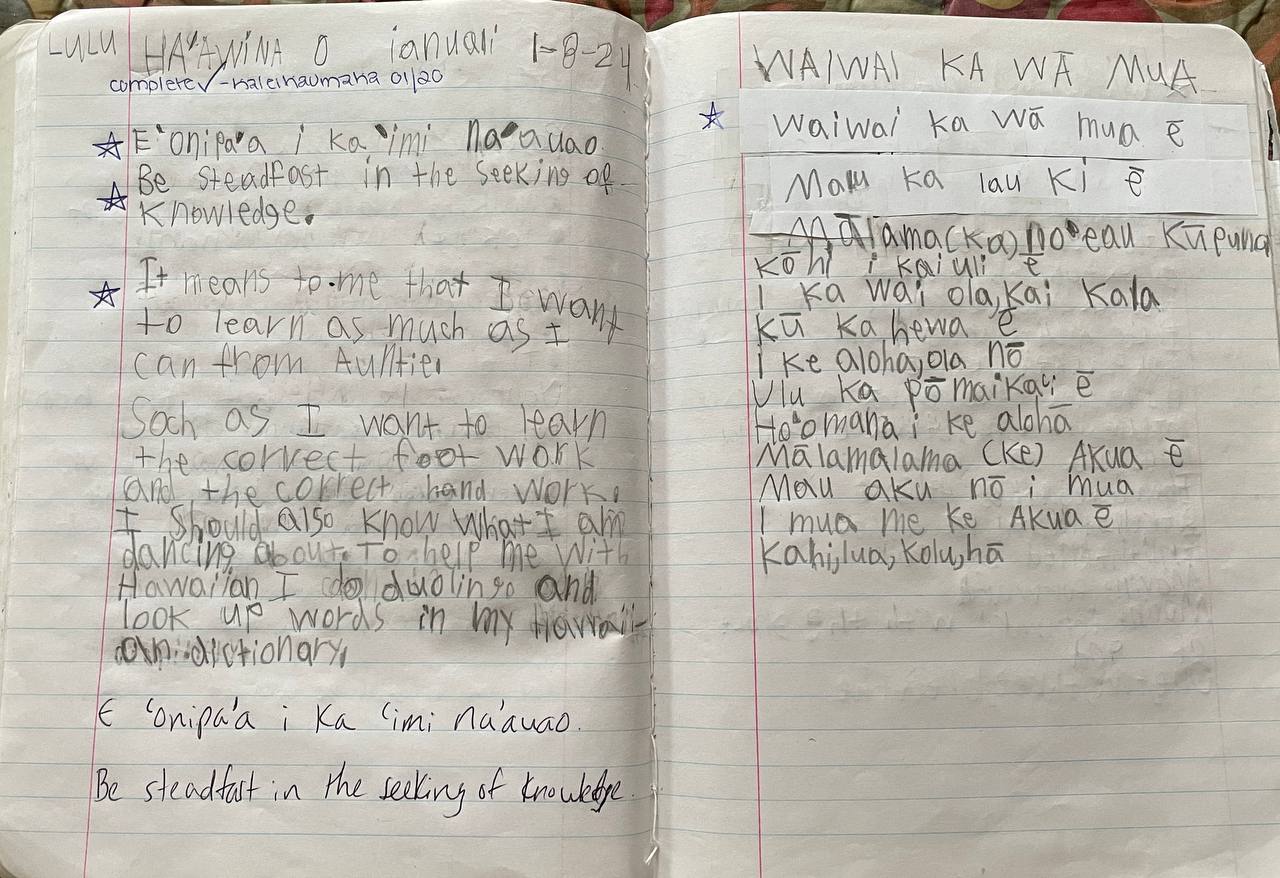 LULU HA'AWINA O ianuali 1-8-24
complete ✓ -Kaleikaumaka 01/20
☆ E 'onipa'a i ka 'imi na'auao.
☆ Be steadfast in the seeking of
Knowledge.
☆ It means to me that I want
to learn as much as I
can from Auntie.
Soch as I want to learn
the correct foot work
and the correct hand work.
I should also know what I am
dancing about. To help me with
Hawaiian I do duolingo and
look up words in my Hawaii-
an dictionary.
E 'onipa'a i Ka 'imi na'auao.
Be steadfast in the seeking of knowledge.
WAIWAI KA WĀ MUA
☆ Waiwai ka wā mua ē
Malu ka lau Ki ē
Mālama (Ka) no'eau Kūpuna
Kōhi i kai uli ē
I ka wai ola, kai Kala
Kū ka hewa ē
I ke aloha, ola nō
Ulu ka pōmaikaʻi ē
Ho'omana i ke alohā
Mālamalama (Ke) Akua ē
Mau aku nō i mua
I mua me ke Akua ē
Kahi, lua, Kolu, hā